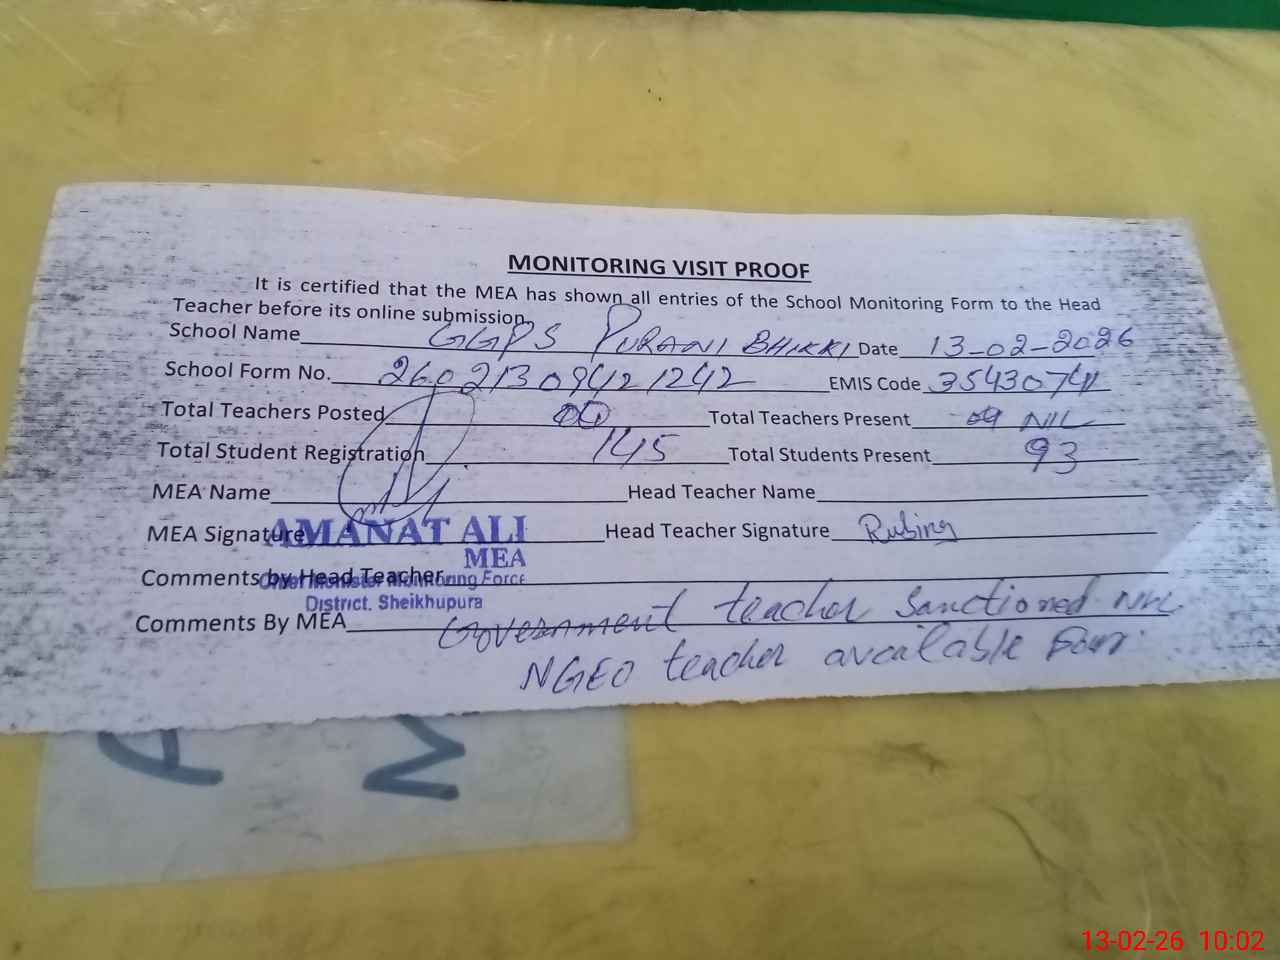 MONITORING VISIT PROOF
It is certified that the MEA has shown all entries of the School Monitoring Form to the Head
Teacher before its online submission.
School Name GGPS PURANI BHIKKI Date 13-02-2026
School Form No. 260213094121242 EMIS Code 35430741
Total Teachers Posted 00 Total Teachers Present NIL
Total Student Registration 145 Total Students Present 93
MEA Name Head Teacher Name
MEA Signature Head Teacher Signature Rubina
AMANAT ALI
MEA
Comments by Head Teacher
Chief Minister Monitoring Force
District. Sheikhupura
Comments By MEA Government teacher Sanctioned NIL
teacher available Four
A
M
13-02-26 10:02